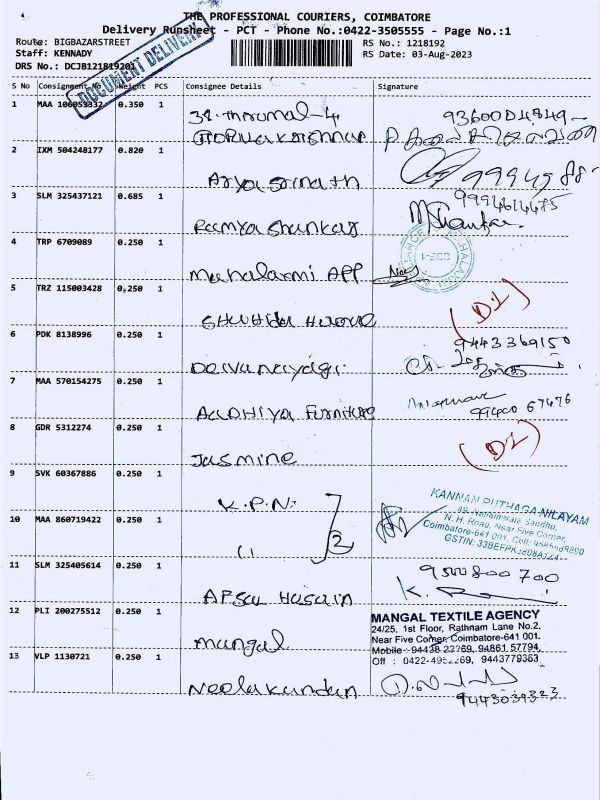 THE PROFESSIONAL COURIERS, COIMBATORE
Delivery Runsheet - PCT - Phone No.:0422-3505555 - Page No.:1
Route: BIGBAZARSTREET
RS No.: 1218192
Staff: KENNADY
RS Date: 03-Aug-2023
DRS No.: DCJB121819201
DOCUMENT DELIVERY
S No Consignment No Weight PCS Consignee Details Signature
1 MAA 106053332 0.350 1
Gopalakrishnan
2 IXM 504248177 0.820 1
Arya Srinath
3 SLM 325437121 0.685 1 9994614475
Ramya Shankar
4 TRP 6709089 0.250 1
Mahalaxmi APP
5 TRZ 115003428 0.250 1 (D1)
6 PDK 8138996 0.250 1 9443369150
Deivanayagi
7 MAA 570154275 0.250 1
Aadhiya Furniture 99400 67476
8 GDR 5312274 0.250 1 (D1)
Jasmine
9 SVK 60367886 0.250 1
K.P.N. KANNAN PUTHAGA NILAYAM
10 MAA 860719422 0.250 1 2
N. H. Road, Near Five Corner,
Coimbatore-641 001.
11 SLM 325405614 0.250 1 9500800700
Apsar Hussain
12 PLI 200275512 0.250 1
Mangal
MANGAL TEXTILE AGENCY
24/25, 1st Floor, Rathnam Lane No.2,
Near Five Corner, Coimbatore-641 001.
Mobile : 94438 22269, 94861 57794
Off : 9443779363
13 VLP 1130721 0.250 1
Neelakandan
9443039323